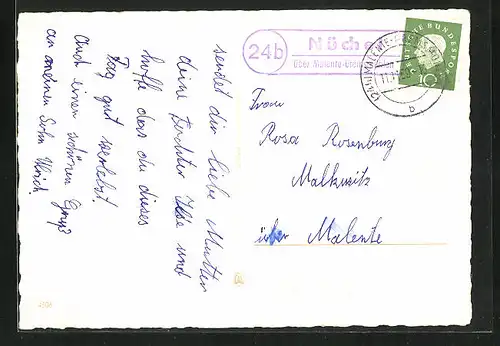 sendet dir liebe Mutter
deine Tochter Ilse und
hoffe das du dieses
Tag gut verlebst.
Auch einen schönen Gruß
an meinen Sohn Ulrich
24b
Nüche
über Malente-Grems
DEUTSCHE BUNDESPOST
10
b
Frau
Rosa Rosenburg
Malkwitz
über Malente